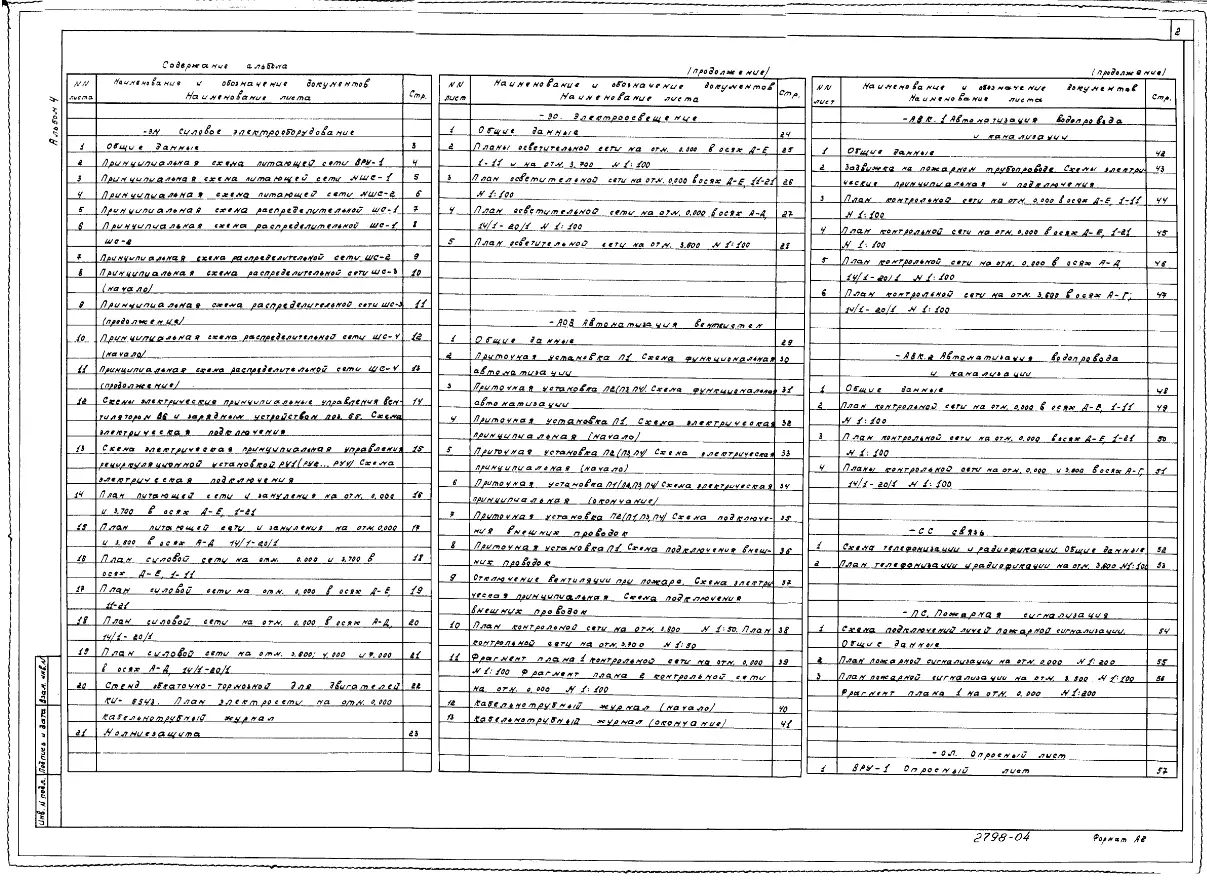 2
Альбом 4
Содержание альбома
NN листа Наименование и обозначение документов Наименование листа Стр.
-ЭМ Силовое электрооборудование
1 Общие данные 3
2 Принципиальная схема питающей сети ВРУ-1 4
3 Принципиальная схема питающей сети МШС-1 5
4 Принципиальная схема питающей сети МШС-2 6
5 Принципиальная схема распределительной ШС-1 7
6 Принципиальная схема распределительной ШС-1 8
ШС-2
7 Принципиальная схема распределительной сети ШС-2 9
8 Принципиальная схема распределительной сети ШС-3 10
(начало)
9 Принципиальная схема распределительной сети ШС-3 11
(продолжение)
10 Принципиальная схема распределительной сети ШС-4 12
(начало)
11 Принципиальная схема распределительной сети ШС-4 13
(продолжение)
12 Схемы электрические принципиальные управления вен- 14
тилятором В6 и зарядным устройством поз. 65. Схема
электрическая подключения
13 Схема электрическая принципиальная управления 15
рециркуляционной установкой РУ1(РУ2... РУ4) Схема
электрическая подключения
14 План питающей сети и зануления на отм. 0,000 16
и 3,700 в осях Д-Е, 1-21
15 План питающей сети и зануления на отм. 0,000 17
и 3,800 в осях А-Д 14/1-20/1
16 План силовой сети на отм. 0.000 и 3.700 в 18
осях Д-Е, 1-11
17 План силовой сети на отм. 0,000 в осях Д-Е 19
11-21
18 План силовой сети на отм. 0,000 в осях А-Д, 20
14/1-20/1
19 План силовой сети на отм. 3,600; 4,000 и 7,000 21
в осях А-Д, 14/1-20/1
20 Стенд обкаточно-тормозной для двигателей 22
КИ-5543. План электросети на отм. 0,000
Кабельнотрубный журнал
21 Молниезащита 23
(продолжение)
NN лист Наименование и обозначение документов Наименование листа Стр.
-ЭО. Электроосвещение
1 Общие данные 24
2 Планы осветительной сети на отм. 0,000 в осях Д-Е 25
1-11 и на отм. 3.700 М 1:100
3 План осветительной сети на отм. 0,000 в осях Д-Е, 11-21 26
М 1:100
4 План осветительной сети на отм. 0,000 в осях А-Д, 27
14/1-20/1 М 1:100
5 План осветительной сети на отм. 3.600 М 1:100 28
-АОВ Автоматизация вентсистем
1 Общие данные 29
2 Приточная установка П1. Схема функциональная 30
автоматизации
3 Приточная установка П2(П3,П4) Схема функциональная 31
автоматизации
4 Приточная установка П1. Схема электрическая 32
принципиальная (начало)
5 Приточная установка П2(П3,П4) Схема электрическая 33
принципиальная (начало)
6 Приточная установка П1(П2,П3,П4) Схема электрическая 34
принципиальная (окончание)
7 Приточная установка П2(П1,П3,П4) Схема подключе- 35
ния внешних проводок
8 Приточная установка П1. Схема подключения внеш- 36
них проводок
9 Отключение вентиляции при пожаре. Схема электри 37
ческая принципиальная. Схема подключения
внешних проводок
10 План контрольной сети на отм. 3.800 М 1:50. План 38
контрольной сети на отм. 3.700 М 1:50
11 Фрагмент плана 1 контрольной сети на отм. 0,000 39
М 1:100 Фрагмент плана 2 контрольной сети
на отм. 0,000 М 1:100
12 Кабельнотрубный журнал (начало) 40
13 Кабельнотрубный журнал (окончание) 41
(продолжение)
NN лист Наименование и обозначение документов Наименование листа Стр.
-АВК.1 Автоматизация водопровода
и канализации
1 Общие данные 42
2 Задвижка на пожарном трубопроводе. Схемы электри- 43
ческие принципиальная и подключения
3 План контрольной сети на отм. 0,000 в осях Д-Е, 1-11 44
М 1:100
4 План контрольной сети на отм. 0,000 в осях Д-Е, 1-21 45
М 1:100
5 План контрольной сети на отм. 0.000 в осях А-Д 46
14/1-20/1 М 1:100
6 План контрольной сети на отм. 3.600 в осях А-Г, 47
14/1-20/1 М 1:100
-АВК.2 Автоматизация водопровода
и канализации
1 Общие данные 48
2 План контрольной сети на отм. 0,000 в осях Д-Е, 1-11 49
М 1:100
3 План контрольной сети на отм. 0,000 в осях Д-Е, 1-21 50
М 1:100
4 Планы контрольной сети на отм. 0,000 и 3.800 в осях А-Г, 51
14/1-20/1 М 1:100
-СС связь
1 Схема телефонизации и радиофикации. Общие данные 52
2 План телефонизации и радиофикации на отм. 3.600 М 1:100 53
-ПС. Пожарная сигнализация
1 Схема подключений лучей пожарной сигнализации. 54
Общие данные
2 План пожарной сигнализации на отм. 0.000 М 1:200 55
3 План пожарной сигнализации на отм. 3.800 М 1:100 56
Фрагмент плана 1 на отм. 0,000 М 1:200
-ОЛ. Опросный лист
1 ВРУ-1 Опросный лист 57
Инв. № подл. Подпись и дата Взам. инв. №
2798-04
Формат А2